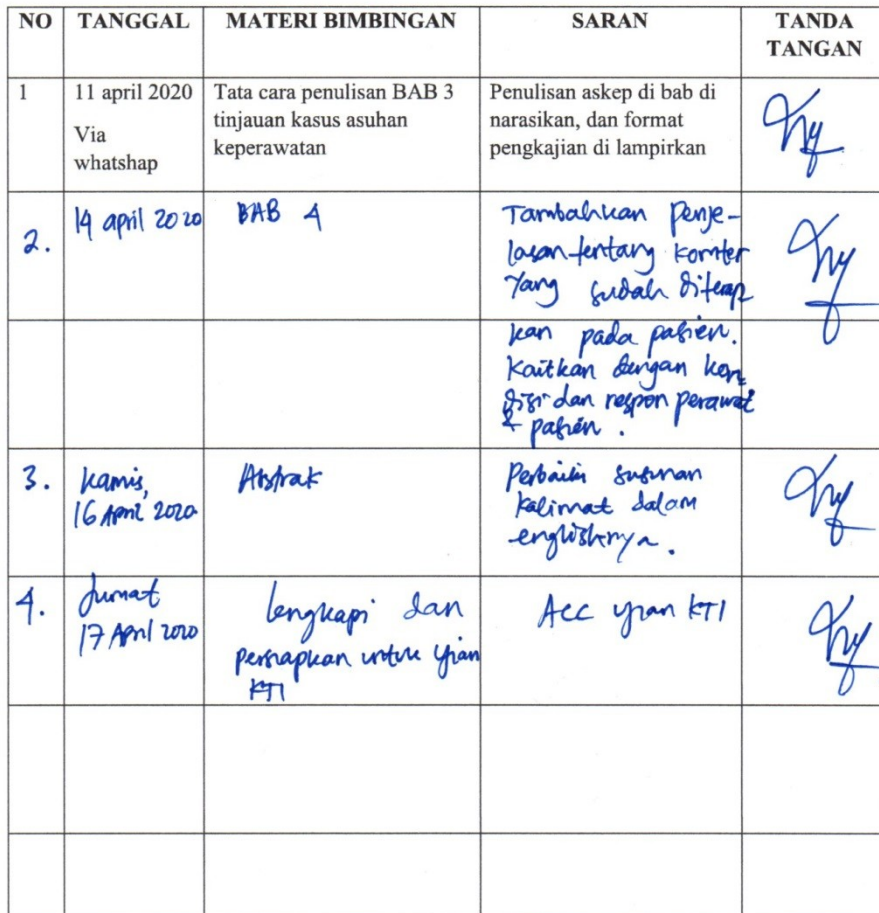 NO TANGGAL MATERI BIMBINGAN SARAN TANDA TANGAN
1
11 april 2020
Via
whatshap
Tata cara penulisan BAB 3
tinjauan kasus asuhan
keperawatan
Penulisan askep di bab di
narasikan, dan format
pengkajian di lampirkan
2.
14 april 2020
BAB 4
Tambahkan penje-
lasan tentang komter
yang sudah diterap
kan pada pasien.
Kaitkan dengan kon
disi dan respon perawat
& pasien.
3.
Kamis,
16 April 2020
Abstrak
Perbaiki susunan
kalimat dalam
englishnya.
4.
Jumat
17 April 2020
lengkapi dan
persiapkan untuk ujian
KTI
Acc ujian KTI